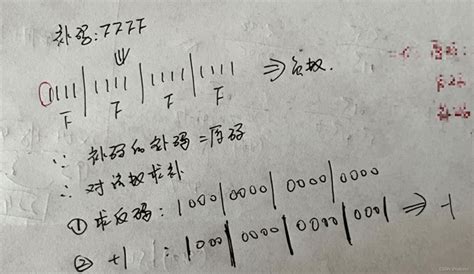 补码:FFFF
⇓
1111 | 1111 | 1111 | 1111 ⇒ 负数.
F F F F
∵ 补码的补码=原码
∴ 对该数求补
① 求反码: 1000 | 0000 | 0000 | 0000
② +1 : 1000 | 0000 | 0000 | 0001 ⇒ -1